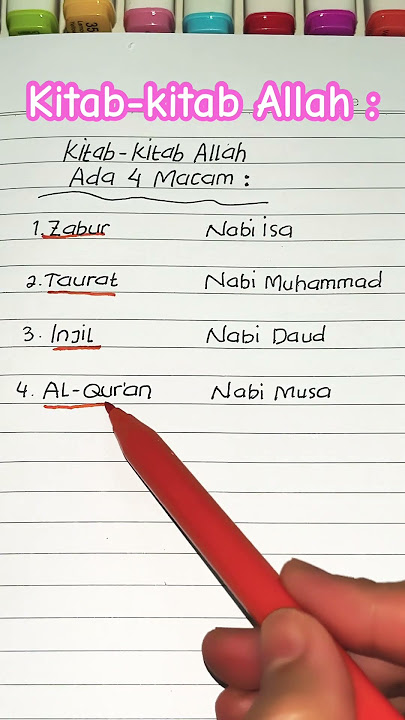 Kitab-kitab Allah :
Kitab-Kitab Allah
Ada 4 Macam :
1. Zabur Nabi isa
2. Taurat Nabi Muhammad
3. Injil Nabi Daud
4. AL-Qur'an Nabi Musa